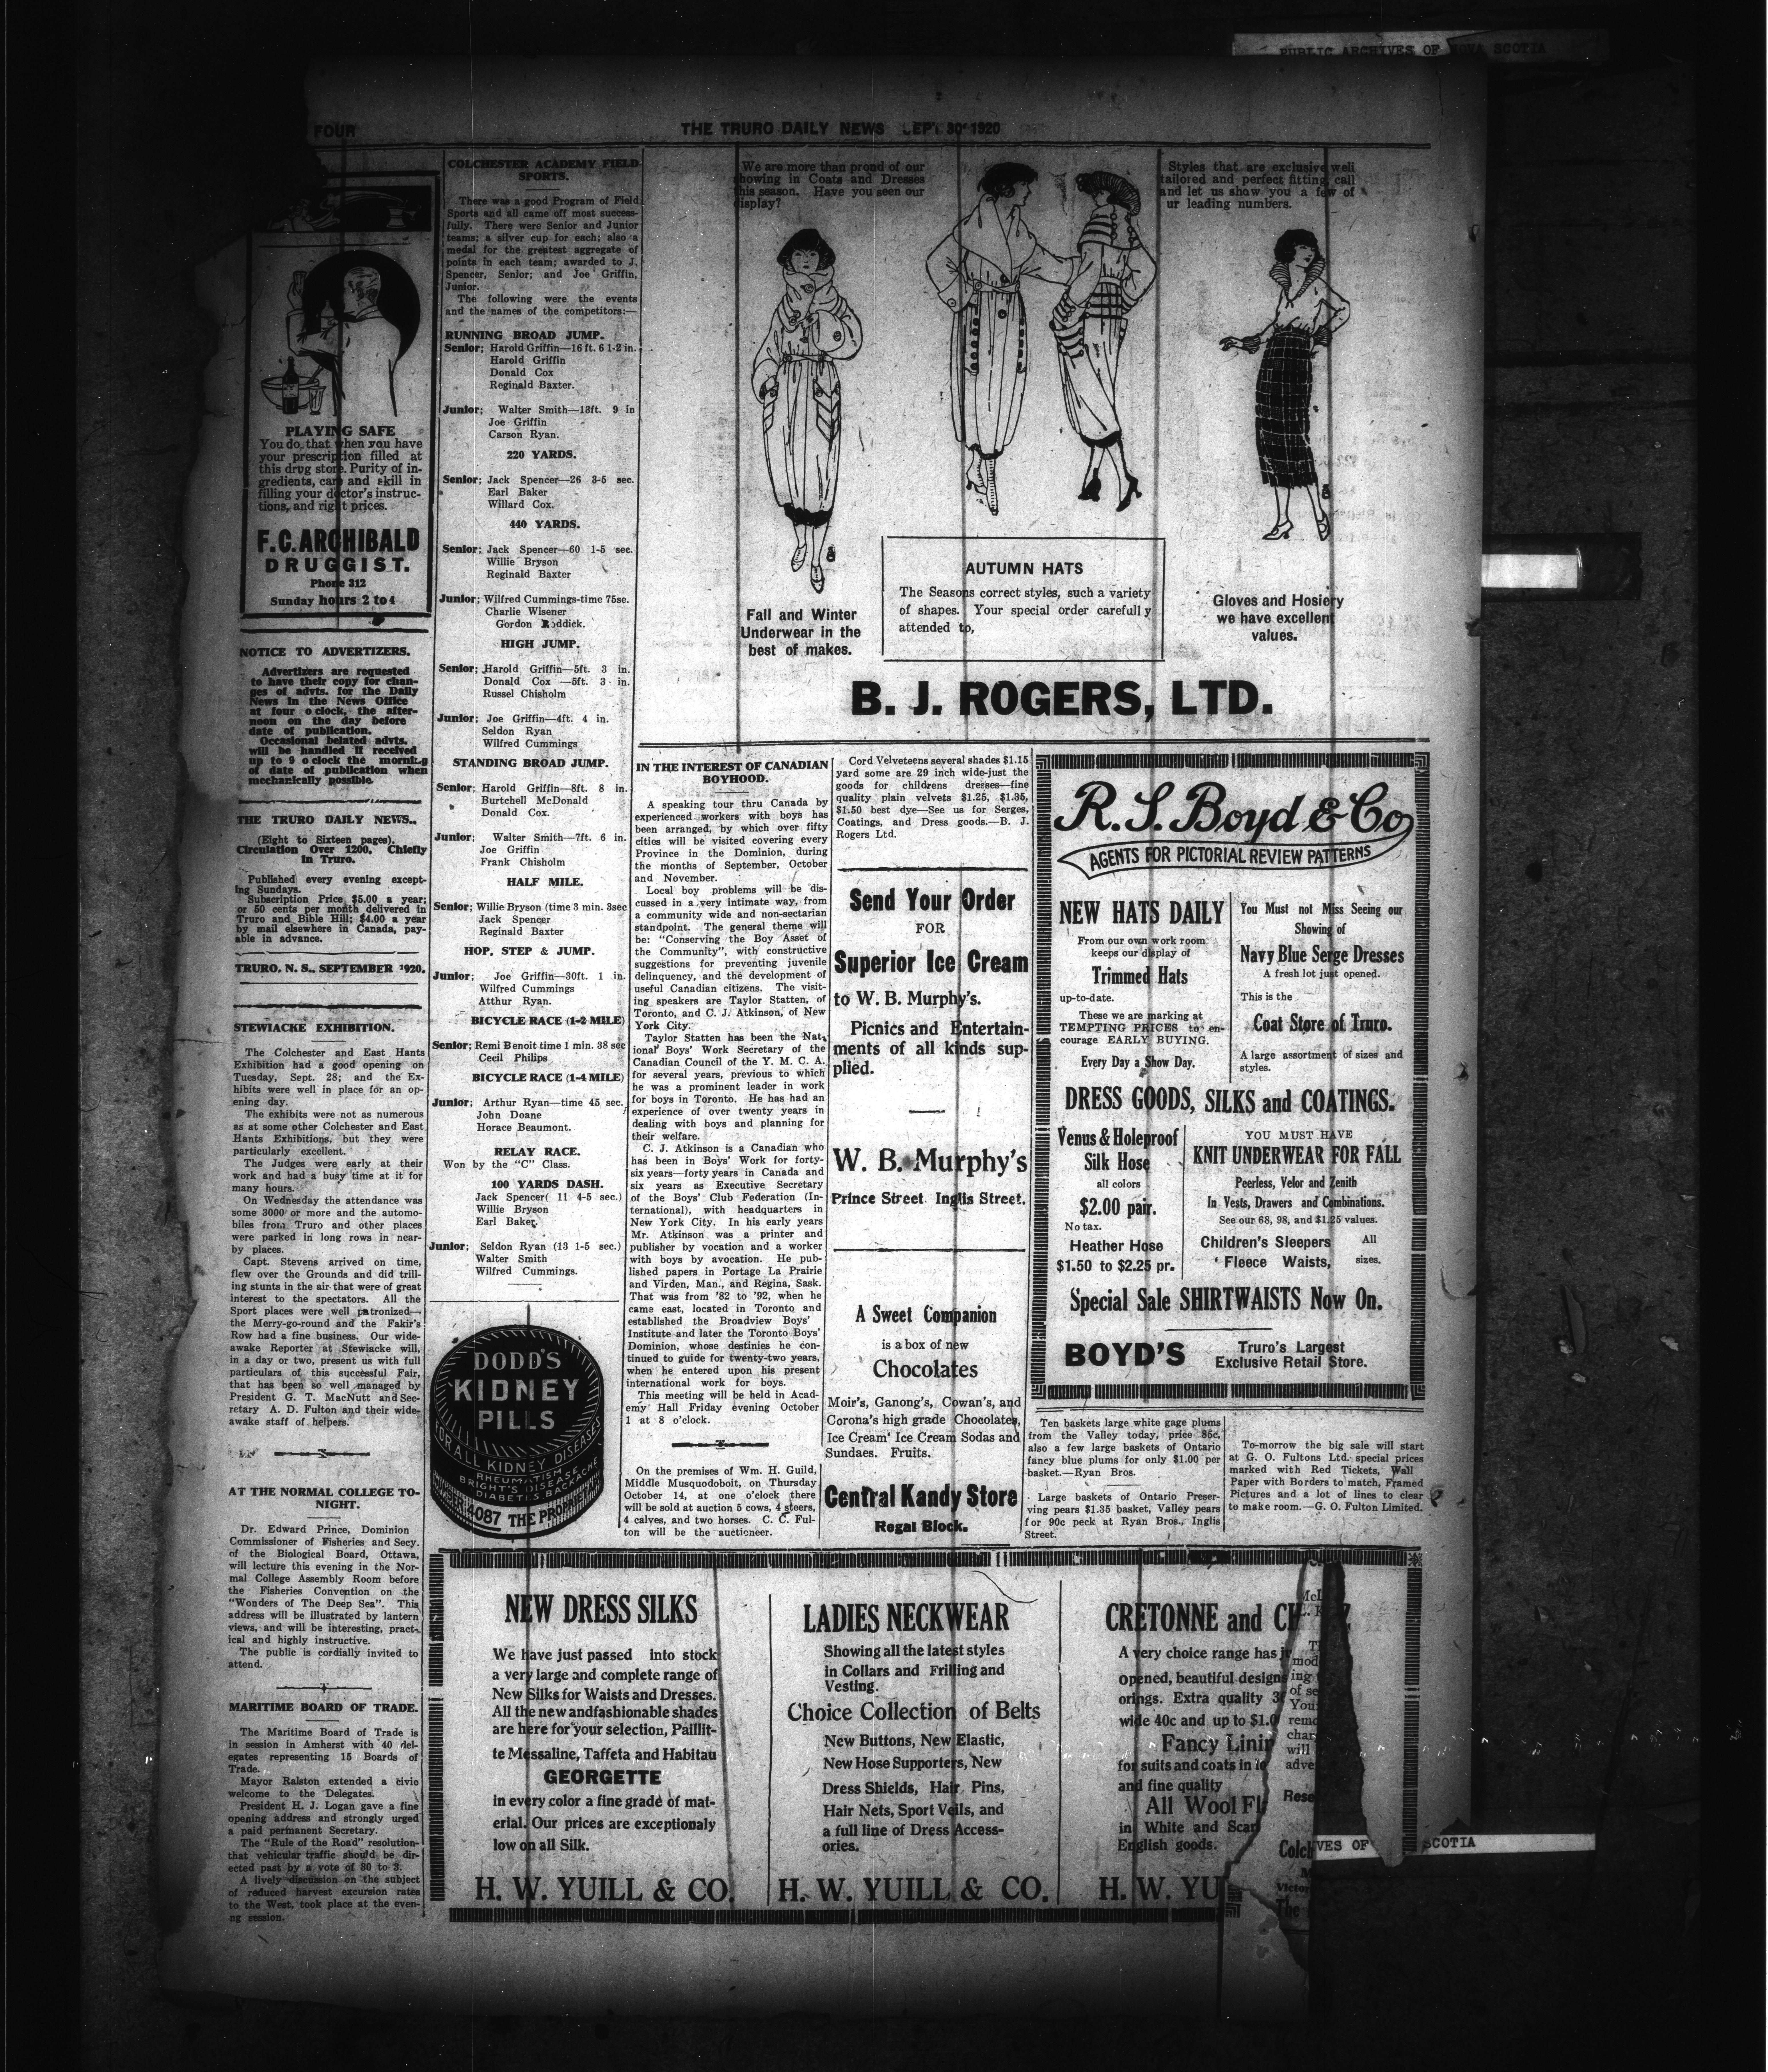 PUBLIC ARCHIVES OF NOVA SCOTIA
FOUR
THE TRURO DAILY NEWS SEPT 30 1920
PLAYING SAFE
You do that when you have
your prescription filled at
this drug store. Purity of in-
gredients, care and skill in
filling your doctor's instruc-
tions, and right prices.
F.C. ARCHIBALD
DRUGGIST.
Phone 312
Sunday hours 2 to 4
NOTICE TO ADVERTIZERS.
Advertizers are requested
to have their copy for chan-
ges of advts. for the Daily
News in the News Office
at four o clock, the after-
noon on the day before
date of publication.
Occasional belated advts.
will be handled if received
up to 9 o clock the morning
of date of publication when
mechanically possible.
THE TRURO DAILY NEWS..
(Eight to Sixteen pages).
Circulation Over 1200, Chiefly
in Truro.
Published every evening except-
ing Sundays.
Subscription Price $5.00 a year;
or 50 cents per month delivered in
Truro and Bible Hill; $4.00 a year
by mail elsewhere in Canada, pay-
able in advance.
TRURO, N. S., SEPTEMBER 1920.
STEWIACKE EXHIBITION.
The Colchester and East Hants
Exhibition had a good opening on
Tuesday, Sept. 28; and the Ex-
hibits were well in place for an op-
ening day.
The exhibits were not as numerous
as at some other Colchester and East
Hants Exhibitions, but they were
particularly excellent.
The Judges were early at their
work and had a busy time at it for
many hours.
On Wednesday the attendance was
some 3000 or more and the automo-
biles from Truro and other places
were parked in long rows in near-
by places.
Capt. Stevens arrived on time,
flew over the Grounds and did trill-
ing stunts in the air that were of great
interest to the spectators. All the
Sport places were well patronized—
the Merry-go-round and the Fakir's
Row had a fine business. Our wide-
awake Reporter at Stewiacke will,
in a day or two, present us with full
particulars of this successful Fair,
that has been so well managed by
President G. T. MacNutt and Sec-
retary A. D. Fulton and their wide-
awake staff of helpers.
AT THE NORMAL COLLEGE TO-
NIGHT.
Dr. Edward Prince, Dominion
Commissioner of Fisheries and Secy.
of the Biological Board, Ottawa,
will lecture this evening in the Nor-
mal College Assembly Room before
the Fisheries Convention on the
"Wonders of The Deep Sea". This
address will be illustrated by lantern
views, and will be interesting, pract-
ical and highly instructive.
The public is cordially invited to
attend.
MARITIME BOARD OF TRADE.
The Maritime Board of Trade is
in session in Amherst with 40 del-
egates representing 15 Boards of
Trade.
Mayor Ralston extended a civio
welcome to the Delegates.
President H. J. Logan gave a fine
opening address and strongly urged
a paid permanent Secretary.
The "Rule of the Road" resolution-
that vehicular traffic should be dir-
ected past by a vote of 30 to 3.
A lively discussion on the subject
of reduced harvest excursion rates
to the West, took place at the even-
ng session.
COLCHESTER ACADEMY FIELD
SPORTS.
There was a good Program of Field
Sports and all came off most success-
fully. There were Senior and Junior
teams; a silver cup for each; also a
medal for the greatest aggregate of
points in each team; awarded to J.
Spencer, Senior; and Joe Griffin,
Junior.
The following were the events
and the names of the competitors:—
RUNNING BROAD JUMP.
Senior; Harold Griffin—16 ft. 6 1-2 in.
Harold Griffin
Donald Cox
Reginald Baxter.
Junior; Walter Smith—13ft. 9 in
Joe Griffin
Carson Ryan.
220 YARDS.
Senior; Jack Spencer—26 3-5 sec.
Earl Baker
Willard Cox.
440 YARDS.
Senior; Jack Spencer—60 1-5 sec.
Willie Bryson
Reginald Baxter
Junior; Wilfred Cummings-time 75se.
Charlie Wisener
Gordon Roddick.
HIGH JUMP.
Senior; Harold Griffin—5ft. 3 in.
Donald Cox —5ft. 3 in.
Russel Chisholm
Junior; Joe Griffin—4ft. 4 in.
Seldon Ryan
Wilfred Cummings
STANDING BROAD JUMP.
Senior; Harold Griffin—8ft. 8 in.
Burtchell McDonald
Donald Cox.
Junior; Walter Smith—7ft. 6 in.
Joe Griffin
Frank Chisholm
HALF MILE.
Senior; Willie Bryson (time 3 min. 3sec
Jack Spencer
Reginald Baxter
HOP, STEP & JUMP.
Junior; Joe Griffin—30ft. 1 in.
Wilfred Cummings
Atthur Ryan.
BICYCLE RACE (1-2 MILE)
Senior; Remi Benoit time 1 min. 38 sec
Cecil Philips
BICYCLE RACE (1-4 MILE)
Junior; Arthur Ryan—time 45 sec.
John Doane
Horace Beaumont.
RELAY RACE.
Won by the "C" Class.
100 YARDS DASH.
Jack Spencer( 11 4-5 sec.)
Willie Bryson
Earl Baker.
Junior; Seldon Ryan (13 1-5 sec.)
Walter Smith
Wilfred Cummings.
DODD'S
KIDNEY
PILLS
FOR ALL KIDNEY DISEASES
RHEUMATISM
BRIGHT'S DISEASE
DIABETES BACKACHE
4087 THE PRO
We are more than prond of our
howing in Coats and Dresses
this season. Have you seen our
isplay?
Styles that are exclusive well
tailored and perfect fitting, call
and let us show you a few of
ur leading numbers.
Fall and Winter
Underwear in the
best of makes.
AUTUMN HATS
The Seasons correct styles, such a variety
of shapes. Your special order carefully
attended to,
Gloves and Hosiery
we have excellent
values.
B. J. ROGERS, LTD.
IN THE INTEREST OF CANADIAN
BOYHOOD.
A speaking tour thru Canada by
experienced workers with boys has
been arranged, by which over fifty
cities will be visited covering every
Province in the Dominion, during
the months of September, October
and November.
Local boy problems will be dis-
cussed in a very intimate way, from
a community wide and non-sectarian
standpoint. The general theme will
be: "Conserving the Boy Asset of
the Community", with constructive
suggestions for preventing juvenile
delinquency, and the development of
useful Canadian citizens. The visit-
ing speakers are Taylor Statten, of
Toronto, and C. J. Atkinson, of New
York City.
Taylor Statten has been the Nat-
ional Boys' Work Secretary of the
Canadian Council of the Y. M. C. A.
for several years, previous to which
he was a prominent leader in work
for boys in Toronto. He has had an
experience of over twenty years in
dealing with boys and planning for
their welfare.
C. J. Atkinson is a Canadian who
has been in Boys' Work for forty-
six years—forty years in Canada and
six years as Executive Secretary
of the Boys' Club Federation (In-
ternational), with headquarters in
New York City. In his early years
Mr. Atkinson was a printer and
publisher by vocation and a worker
with boys by avocation. He pub-
lished papers in Portage La Prairie
and Virden, Man., and Regina, Sask.
That was from '82 to '92, when he
came east, located in Toronto and
established the Broadview Boys'
Institute and later the Toronto Boys'
Dominion, whose destinies he con-
tinued to guide for twenty-two years,
when he entered upon his present
international work for boys.
This meeting will be held in Acad-
emy Hall Friday evening October
1 at 8 o'clock.
On the premises of Wm. H. Guild,
Middle Musquodoboit, on Thursday
October 14, at one o'clock there
will be sold at auction 5 cows, 4 steers,
4 calves, and two horses. C. C. Ful-
ton will be the auctioneer.
Cord Velveteens several shades $1.15
yard some are 29 inch wide-just the
goods for childrens dresses—fine
quality plain velvets $1.25, $1.35,
$1.50 best dye—See us for Serges,
Coatings, and Dress goods.—B. J.
Rogers Ltd.
Send Your Order
FOR
Superior Ice Cream
to W. B. Murphy's.
Picnics and Entertain-
ments of all kinds sup-
plied.
W. B. Murphy's
Prince Street Inglis Street.
A Sweet Companion
is a box of new
Chocolates
Moir's, Ganong's, Cowan's, and
Corona's high grade Chocolates,
Ice Cream' Ice Cream Sodas and
Sundaes. Fruits.
Central Kandy Store
Regal Block.
R. S. Boyd & Co
AGENTS FOR PICTORIAL REVIEW PATTERNS
NEW HATS DAILY
From our own work room
keeps our display of
Trimmed Hats
up-to-date.
These we are marking at
TEMPTING PRICES to en-
courage EARLY BUYING.
Every Day a Show Day.
You Must not Miss Seeing our
Showing of
Navy Blue Serge Dresses
A fresh lot just opened.
This is the
Coat Store of Truro.
A large assortment of sizes and
styles.
DRESS GOODS, SILKS and COATINGS.
Venus & Holeproof
Silk Hose
all colors
$2.00 pair.
No tax.
Heather Hose
$1.50 to $2.25 pr.
YOU MUST HAVE
KNIT UNDERWEAR FOR FALL
Peerless, Velor and Zenith
In Vests, Drawers and Combinations.
See our 68, 98, and $1.25 values.
Children's Sleepers All
Fleece Waists, sizes.
Special Sale SHIRTWAISTS Now On.
BOYD'S
Truro's Largest
Exclusive Retail Store.
Ten baskets large white gage plums
from the Valley today, price 85c,
also a few large baskets of Ontario
fancy blue plums for only $1.00 per
basket.—Ryan Bros.
Large baskets of Ontario Preser-
ving pears $1.35 basket, Valley pears
for 90c peck at Ryan Bros., Inglis
Street.
To-morrow the big sale will start
at G. O. Fultons Ltd. special prices
marked with Red Tickets, Wall
Paper with Borders to match, Framed
Pictures and a lot of lines to clear
to make room.—G. O. Fulton Limited.
NEW DRESS SILKS
We have just passed into stock
a very large and complete range of
New Silks for Waists and Dresses.
All the new andfashionable shades
are here for your selection, Paillit-
te Messaline, Taffeta and Habitau
GEORGETTE
in every color a fine grade of mat-
erial. Our prices are exceptionaly
low on all Silk.
H. W. YUILL & CO.
LADIES NECKWEAR
Showing all the latest styles
in Collars and Frilling and
Vesting.
Choice Collection of Belts
New Buttons, New Elastic,
New Hose Supporters, New
Dress Shields, Hair Pins,
Hair Nets, Sport Veils, and
a full line of Dress Access-
ories.
H. W. YUILL & CO.
CRETONNE and CH
A very choice range has j
opened, beautiful designs
orings. Extra quality 3
wide 40c and up to $1.0
Fancy Linin
for suits and coats in
and fine quality
All Wool Fl
in White and Scar
English goods.
H. W. YU
mod
ing
of se
You
remo
char
will
adve
Rose
Colch
Victor
The
VES OF
SCOTIA